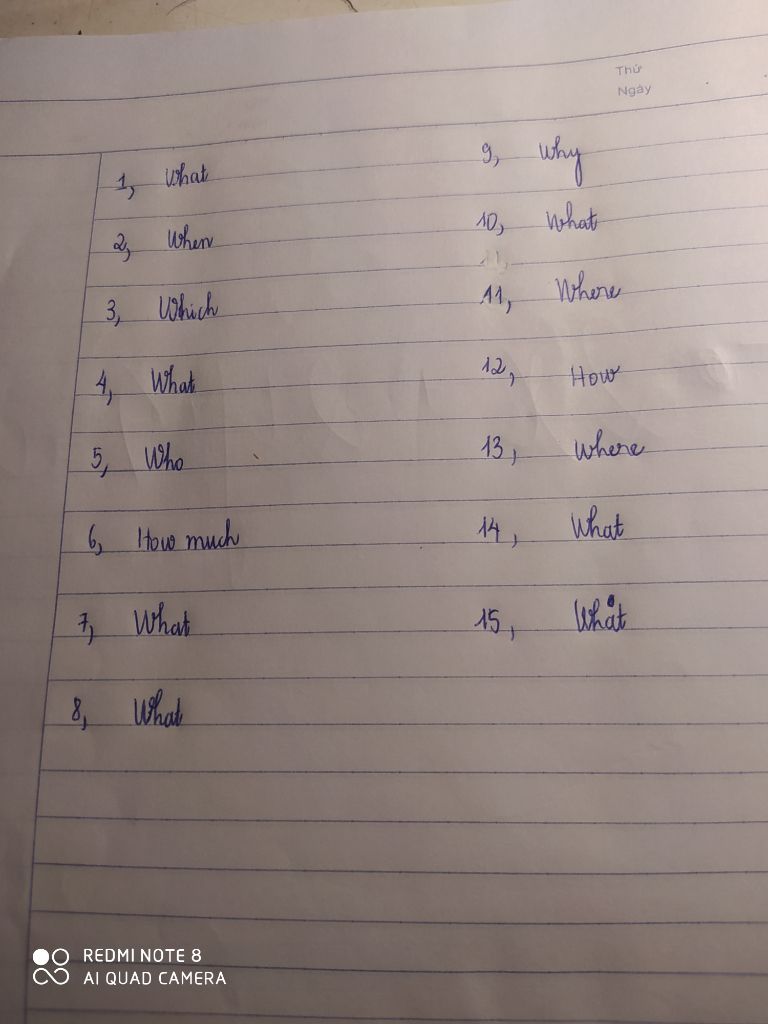 Thứ
Ngày
1, What
2, When
3, Which
4, What
5, Who
6, How much
7, What
8, What
9, Why
10, What
11, Where
12, How
13, Where
14, What
15, What
REDMI NOTE 8
AI QUAD CAMERA